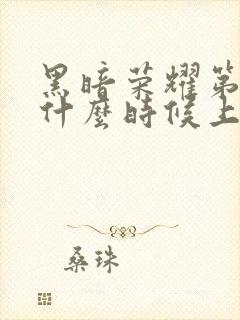 黑暗荣耀第
什麼時候上
桑珠